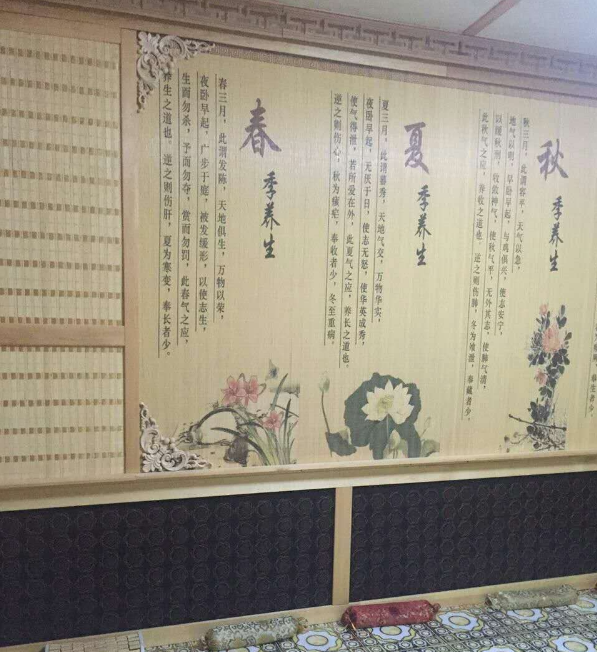 春季养生
春三月，此谓发陈，天地俱生，万物以荣，
夜卧早起，广步于庭，被发缓形，以使志生，
生而勿杀，予而勿夺，赏而勿罚，此春气之应，
养生之道也 逆之则伤肝，夏为寒变，奉长者少。
夏季养生
夏三月，此谓蕃秀，天地气交，万物华实，
夜卧早起，无厌于日，使志无怒，使华英成秀，
使气得泄，若所爱在外，此夏气之应，养长之道也。
逆之则伤心，秋为痎疟，奉收者少，冬至重病。
秋季养生
秋三月，此谓容平，天气以急，
地气以明，早卧早起，与鸡俱兴，使志安宁，
以缓秋刑，收敛神气，使秋气平，无外其志，使肺气清，
此秋气之应，养收之道也 逆之则伤肺，冬为飧泄，奉藏者少。
奉生者少。